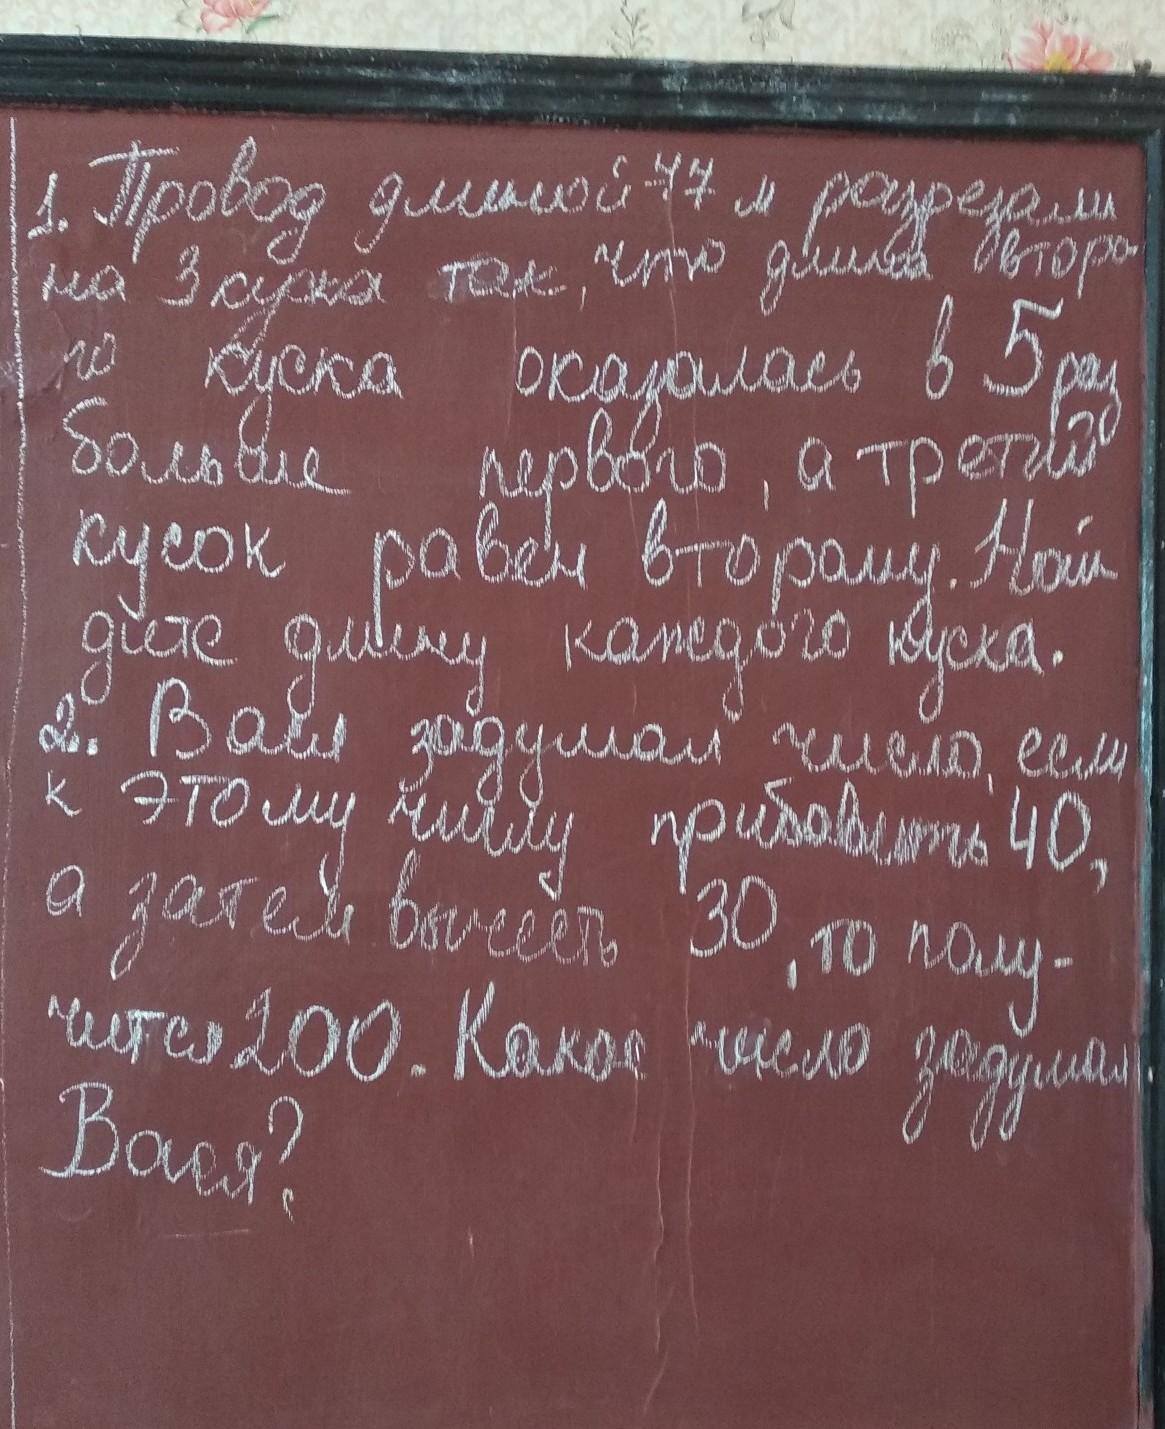 1. Провод длиной 77 м разрезали
на 3 куска так, что длина второ
го куска оказалась в 5 раз
больше первого, а третий
кусок равен второму. Най
дите длину каждого куска.
2. Вася задумал число, если
к этому числу прибавить 40,
а затем вычесть 30, то полу-
чится 200. Какое число задумал
Вася?